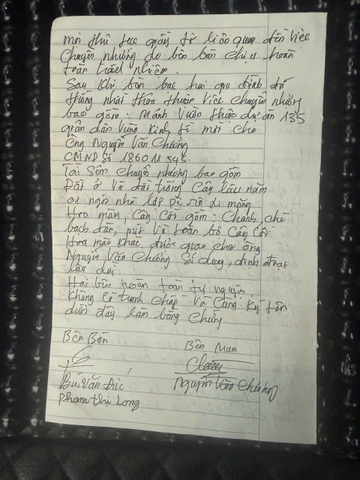 mọi thủ tục giấy tờ liên quan đến việc
chuyển nhượng do bên bán chịu hoàn
toàn trách nhiệm.
Sau khi bàn bạc hai gia đình đã
thống nhất thỏa thuận việc chuyển nhượng
bao gồm: mảnh vườn thuộc dự án 135
giãn dân vùng kinh tế mới cho
Ông Nguyễn Văn Chương
CMND Số 186011545.
Tài sản chuyển nhượng bao gồm
Đất ở và đất trồng cây lâu năm
01 ngôi nhà lợp
Hoa màu, cây cối gồm: chanh, chè
bạch đàn, mít và toàn bộ cây cối
Hoa màu khác được giao cho ông
Nguyễn Văn Chương sử dụng, định đoạt
lâu dài
Hai bên hoàn toàn tự nguyện
không có tranh chấp và cùng ký tên
dưới đây làm bằng chứng
Bên Bán Bên Mua
Bùi Văn Đức Nguyễn Văn Chương
Phạm Thị Long